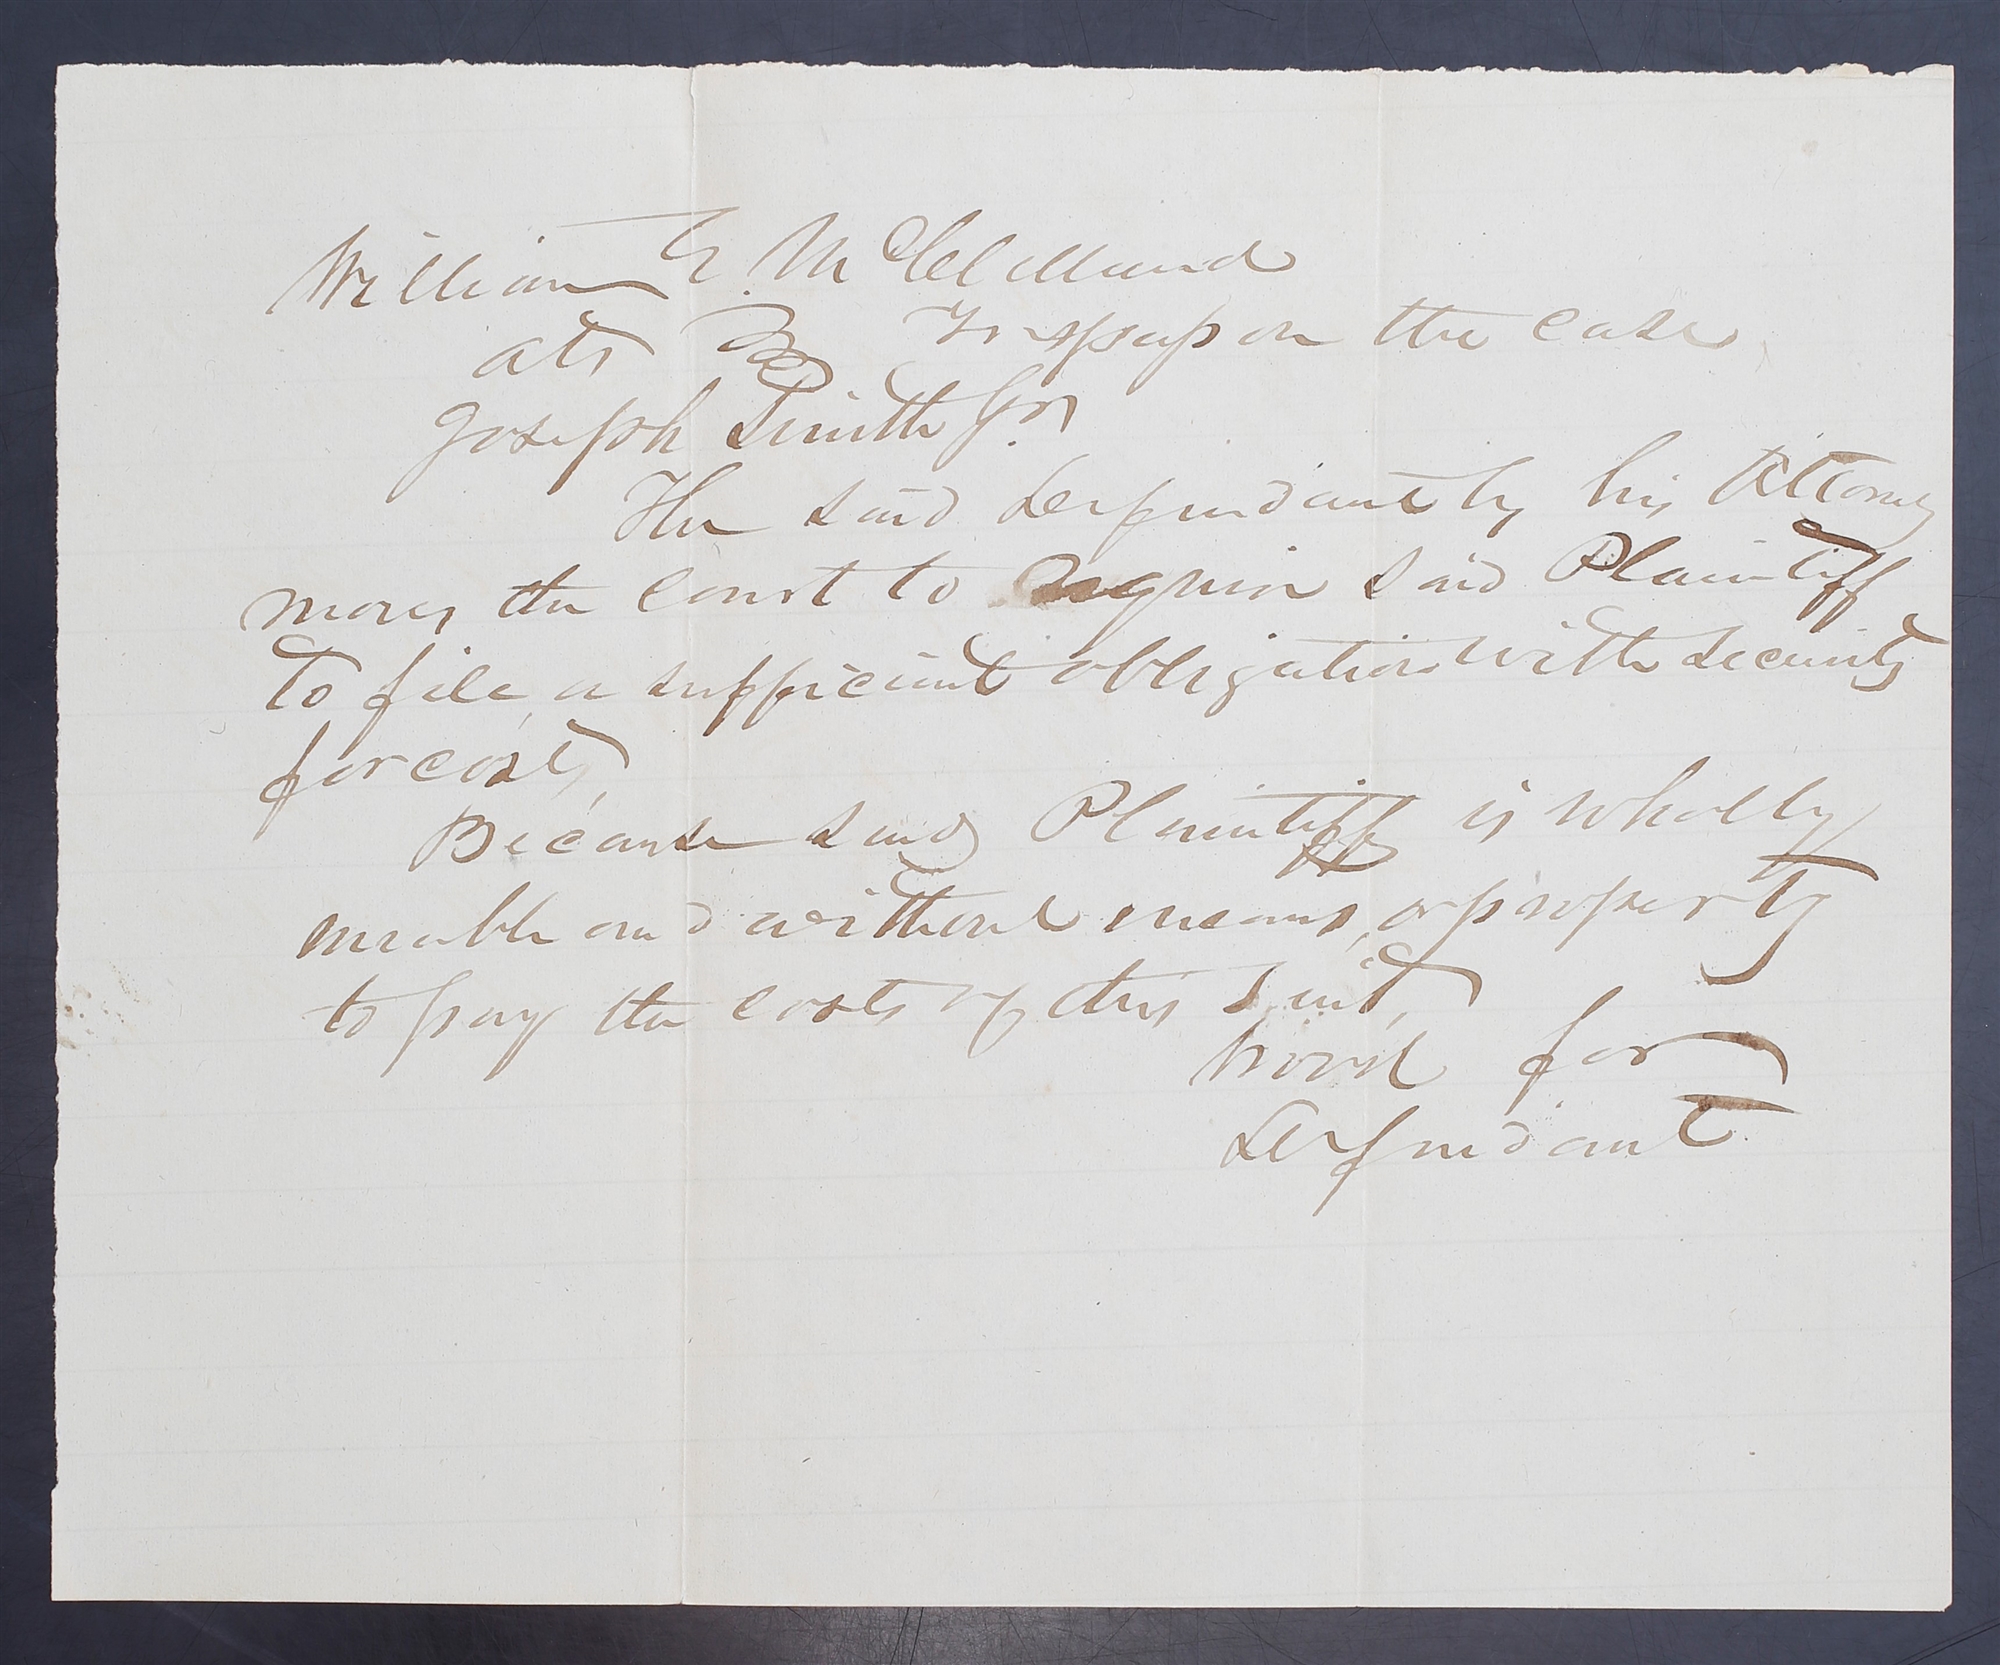 William E. McClelland
ats Trespass on the case
Joseph Smith Jr.
The said Defendant by his Attorney
moves the court to require said Plaintiff
to file a sufficient obligation with security
for costs,
Because said Plaintiff is wholly
unable and without means, or property
to pay the costs of this suit,
Wood for
Defendant